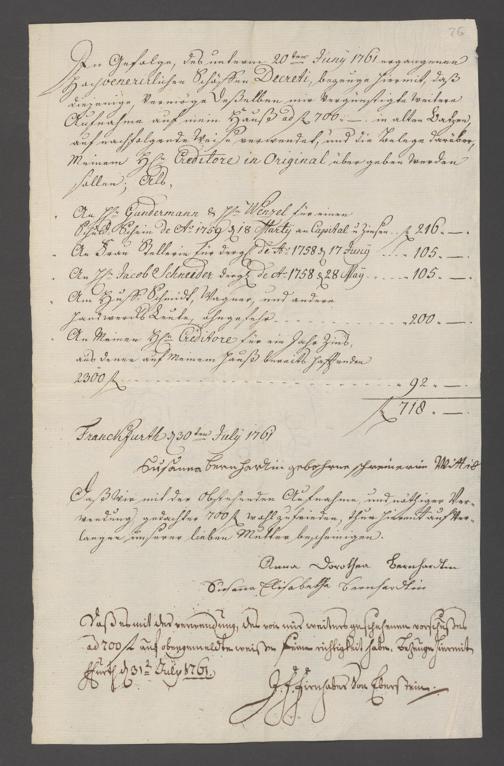 26
In Gefolge, des unterm 20ten Juny 1761 ergangenen
Hochvenerirlichen Schöffen Decreti, bezeuge hiermit, daß
diejenige, vermöge deßelben mir vergünstigte weitere
Aufnahme auf mein Hauß ad f 700.— in alten Batzen,
auf nachfolgende Weise verwendet, und die Belege darüber,
Meinem Hrn Creditore in Original übergeben werden
sollen, Als,
An Hr. Gundermann & Hr. Wenzel für einen
Schuld Schein de Ao 1759 d 18 Marty an Capital u Zinsen f 216.—
An Frau Bellerin für dergl. de Ao 1758 d 17 Juny 105.—
An Hr. Jacob Schneider dergl. de Ao 1758 d 28 May 105.—
An Huf Schmidt, Wagner, und andere
Handwercks Leute, ohngefehr 200.—
An Meinen Hrn Creditore für ein Jahr Zins,
aus denen auf Meinem Hauß bereits hafftenden
2300 f 92.—
f 718.—
Franckfurth d 30ten July 1761
Susanna Bernhardtin gebohrne Wittib
Daß wir mit der Obstehenden Aufnahme, und nöthiger Ver-
wendung gedachter 700 f wohl zufrieden, thun hiermit auf Ver-
langen unserer lieben Mutter bescheinigen.
Anna Dorothea Bernhardtin
Susana Elisabetha Bernhardtin
Daß es mit der verwendung, des von mir weiters geschehenen vorschusses
ad 700 f auf obengemeldte weise seine richtigkeit habe, bezeuge hiermit
ffurth d 31t July 1761.
J. f. Firnhaber Von Eberstein